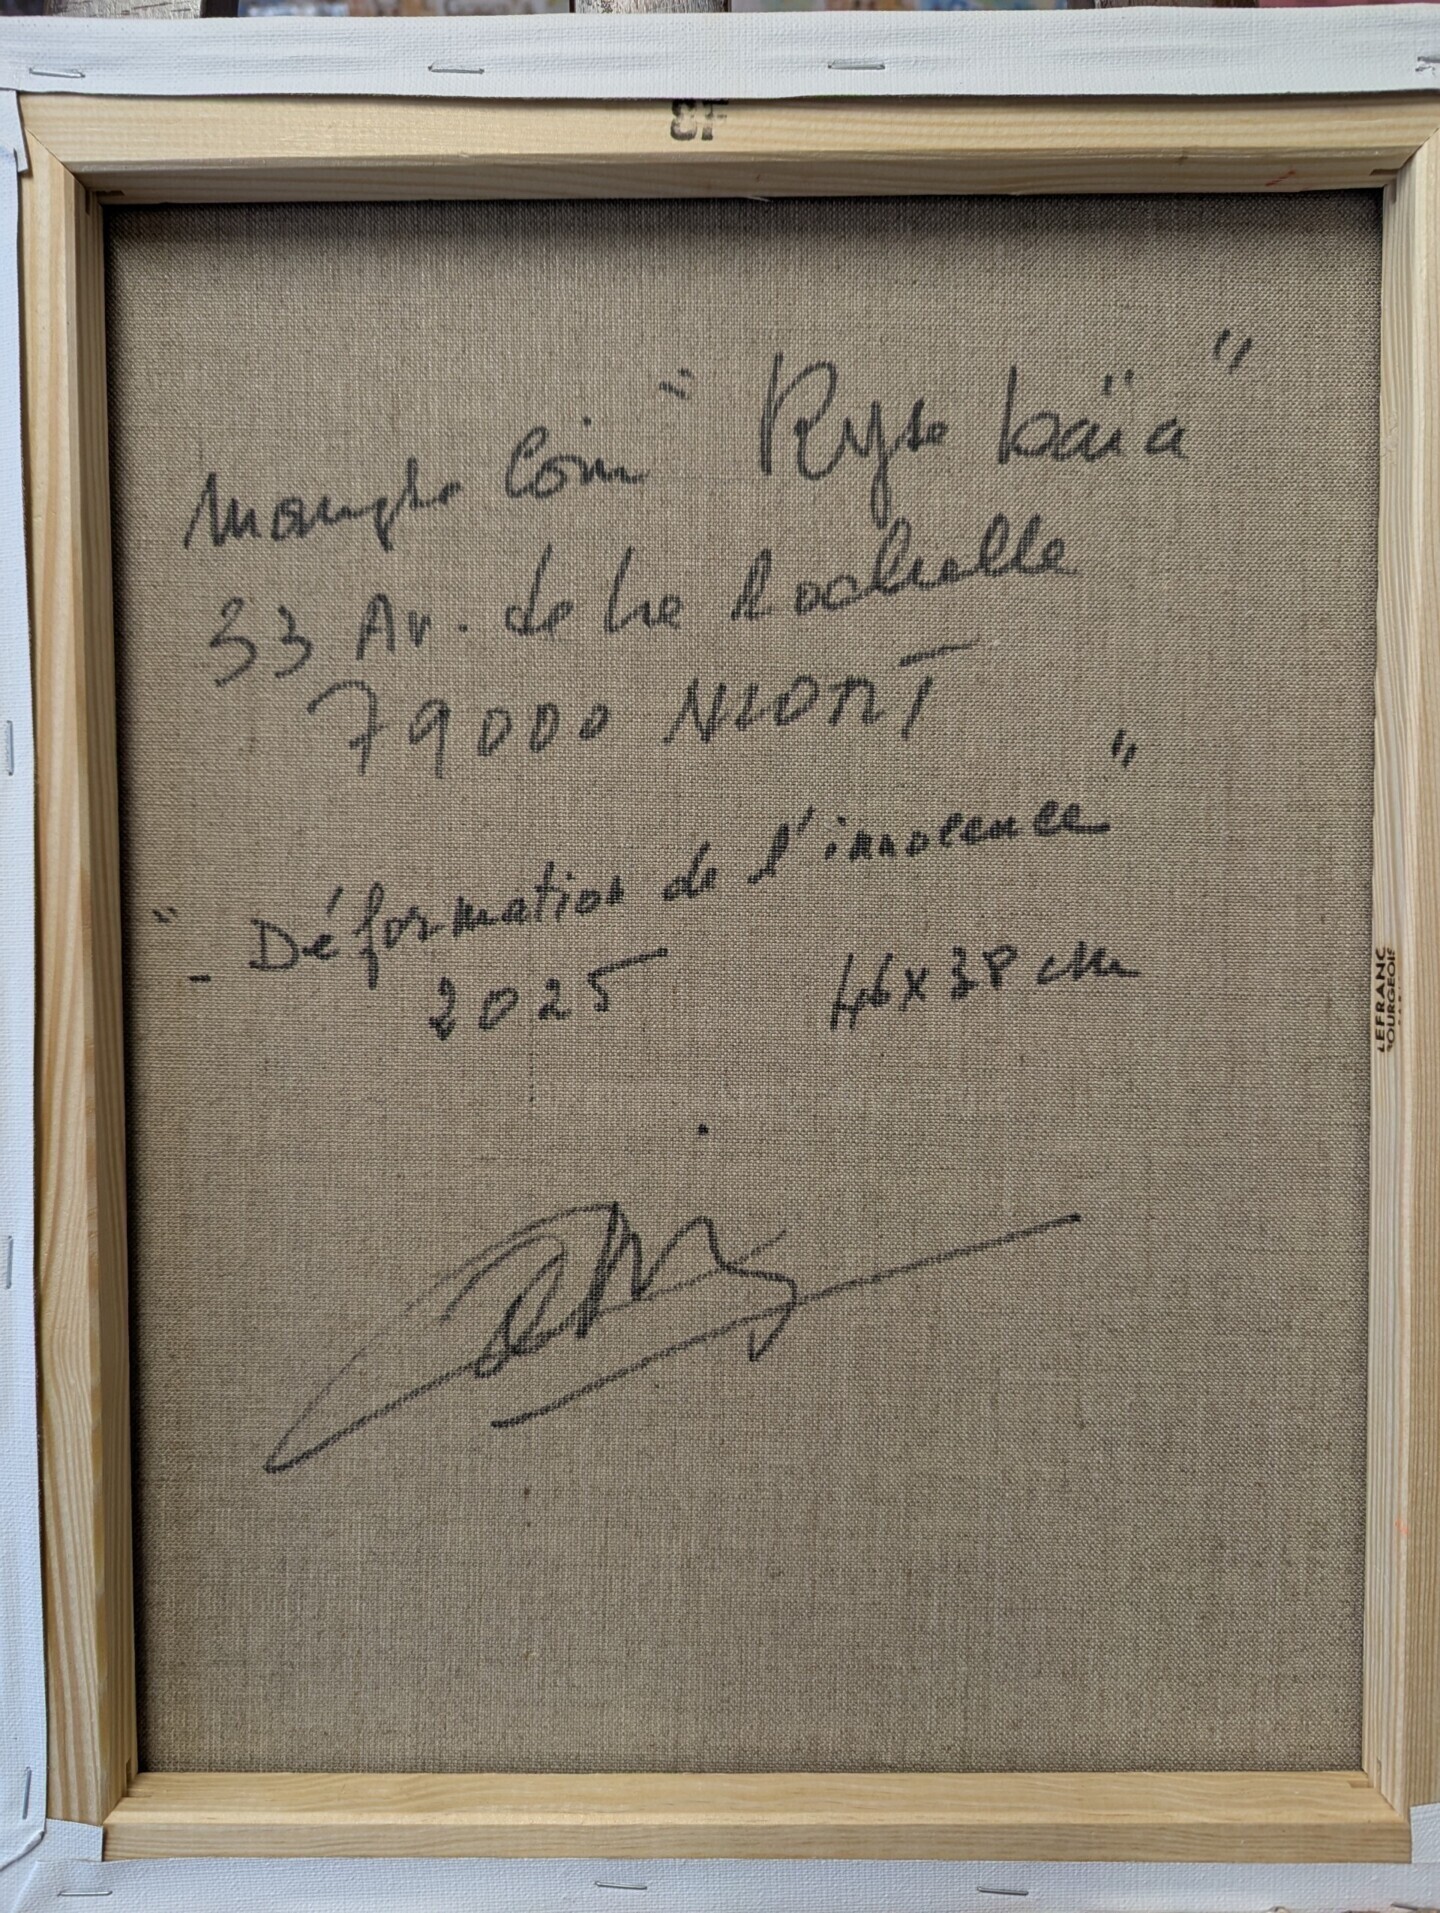 8F
" Ryse baïa "
33 Av. de la Rochelle
79000 NIORT
" - Déformation de l'innocence "
2025 46 x 38 cm
LEFRANC
BOURGEOIS